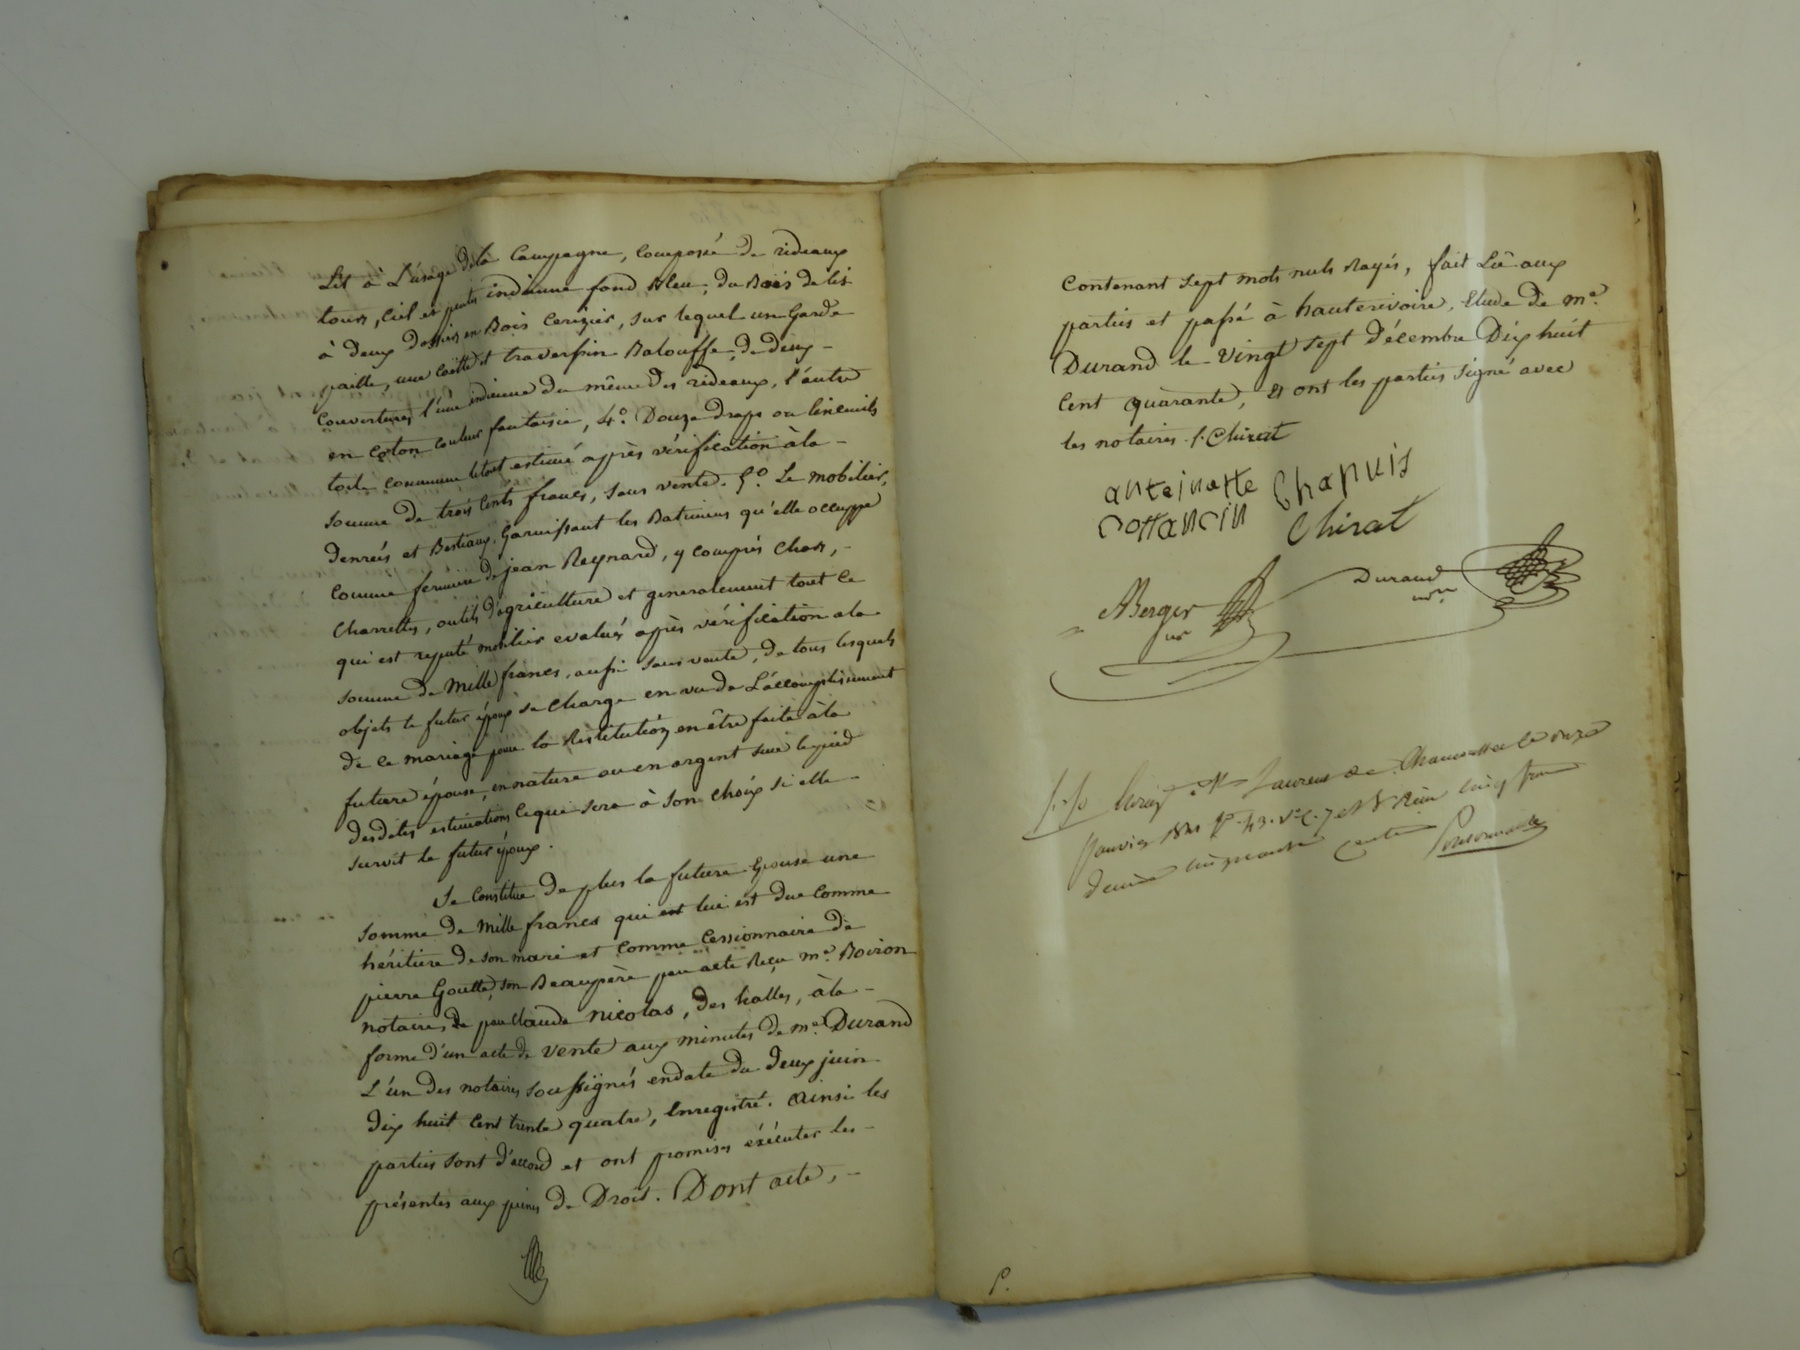 Lit à L'usage dela Campagne, composée de rideaux
tour, Ciel et pentes indienne fond Bleu, du Bois de lit
à deux dossiers en Bois Cerizier, sur lequel un Garde
paille, une Coëtte et traversin Balouffe, de deux
Couvertures l'une indienne du même des rideaux, l'autre
en Coton Couleur fantaisie, 4.° Douze draps ou linceuils
toile commune letout estimé après vérification àla
Somme de trois Cents francs, sans vente. 5.° Le mobilier,
denreés et Bestiaux, Garnissant les Batimens qu'elle occuppe
Comme fermière de jean Reynard, y compris Char,
Charrettes, outils d'agriculture et generalement tout ce
qui est reputé mobilier evalués après vérification ala
somme de Mille francs, aussi sans vente, de tous lesquels
objets le futur époux se Charge en vue de L'accomplissement
de ce mariage pour la Restitution en être faite àla
future épouse, en nature ou en argent sur le pied
desdites estimations Ceque sera à son choix si elle
survit le futur époux.
Se Constitue de plus la future Epouse une
somme de Mille francs qui est lui est due Comme
héritière de son mari et Comme Cessionnaire de
pierre Goutte, son Beaupère par acte Reçu m.e Boiron
notaire, de par Claude Nicolas, des halles, àla
forme d'un acte de Vente aux minutes de m.e Durand
L'un des notaires Soussignés endate du deux juin
dix huit Cent trente quatre, Enregistré. Ainsi les
parties sont d'accord et ont promis exécuter les
présentes aux peines de Droit. Dont acte,
Contenant sept mots nuls Rayés, fait Lû aux
parties et passé à hauterivoire, Etude de m.e
Durand le Vingt sept décembre Dix huit
Cent quarante, et ont les parties signé avec
les notaires. /. Chirat
antoinette Chapuis
cottancin Chirat
Berger Durand
nre nre
St Laurent de Chamousset le onze
Janvier 1841 f° 43. V° C. 7 et 8 Reçu Cinq francs
decime Cinquante Centimes